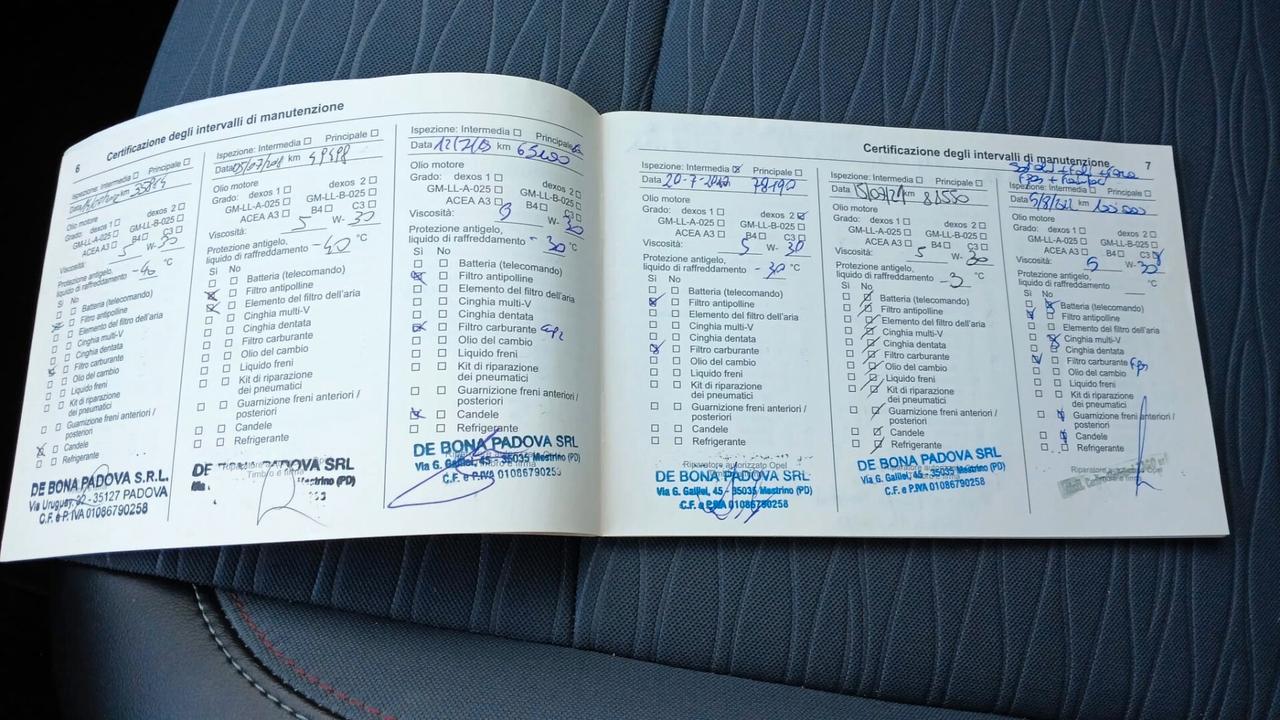 6
Certificazione degli intervalli di manutenzione
Ispezione: Intermedia Principale
Data km
Olio motore
Grado: dexos 1 dexos 2
GM-LL-A-025 GM-LL-B-025
ACEA A3 B4 C3
Viscosità: 5 W-30
Protezione antigelo,
liquido di raffreddamento -40 °C
Sì No
Batteria (telecomando)
Filtro antipolline
Elemento del filtro dell'aria
Cinghia multi-V
Cinghia dentata
Filtro carburante
Olio del cambio
Liquido freni
Kit di riparazione
dei pneumatici
Guarnizione freni anteriori /
posteriori
Candele
Refrigerante
DE BONA PADOVA S.R.L.
Via Uruguay, - 35127 PADOVA
C.F. e P. IVA 01086790258
Ispezione: Intermedia Principale
Data km 49498
Olio motore
Grado: dexos 1 dexos 2
GM-LL-A-025 GM-LL-B-025
ACEA A3 B4 C3
Viscosità: 5 W-30
Protezione antigelo,
liquido di raffreddamento -40 °C
Sì No
Batteria (telecomando)
Filtro antipolline
Elemento del filtro dell'aria
Cinghia multi-V
Cinghia dentata
Filtro carburante
Olio del cambio
Liquido freni
Kit di riparazione
dei pneumatici
Guarnizione freni anteriori /
posteriori
Candele
Refrigerante
DE PADOVA SRL
Mestrino (PD)
Ispezione: Intermedia Principale
Data 12/7/19 km
Olio motore
Grado: dexos 1 dexos 2
GM-LL-A-025 GM-LL-B-025
ACEA A3 B4 C3
Viscosità: W-30
Protezione antigelo,
liquido di raffreddamento -30 °C
Sì No
Batteria (telecomando)
Filtro antipolline
Elemento del filtro dell'aria
Cinghia multi-V
Cinghia dentata
Filtro carburante
Olio del cambio
Liquido freni
Kit di riparazione
dei pneumatici
Guarnizione freni anteriori /
posteriori
Candele
Refrigerante
DE BONA PADOVA SRL
Via G. Galilei, 45 - 35035 Mestrino (PD)
C.F. e P.IVA 01086790258
Certificazione degli intervalli di manutenzione
7
Ispezione: Intermedia Principale
Data 20-7- 78190
Olio motore
Grado: dexos 1 dexos 2
GM-LL-A-025 GM-LL-B-025
ACEA A3 B4 C3
Viscosità: 5 W-30
Protezione antigelo,
liquido di raffreddamento -30 °C
Sì No
Batteria (telecomando)
Filtro antipolline
Elemento del filtro dell'aria
Cinghia multi-V
Cinghia dentata
Filtro carburante
Olio del cambio
Liquido freni
Kit di riparazione
dei pneumatici
Guarnizione freni anteriori /
posteriori
Candele
Refrigerante
Riparatore autorizzato Opel
DE BONA PADOVA SRL
Via G. Galilei, 45 - 35035 Mestrino (PD)
C.F. e P.IVA 01086790258
Ispezione: Intermedia Principale
Data km
Olio motore
Grado: dexos 1 dexos 2
GM-LL-A-025 GM-LL-B-025
ACEA A3 B4 C3
Viscosità: 5 W-30
Protezione antigelo,
liquido di raffreddamento °C
Sì No
Batteria (telecomando)
Filtro antipolline
Elemento del filtro dell'aria
Cinghia multi-V
Cinghia dentata
Filtro carburante
Olio del cambio
Liquido freni
Kit di riparazione
dei pneumatici
Guarnizione freni anteriori /
posteriori
Candele
Refrigerante
DE BONA PADOVA SRL
Via G. Galilei, 45 - 35035 Mestrino (PD)
C.F. e P.IVA 01086790258
Ispezione: Intermedia Principale
Data km 100.000
Olio motore
Grado: dexos 1 dexos 2
GM-LL-A-025 GM-LL-B-025
ACEA A3 B4 C3
Viscosità: 5 W-30
Protezione antigelo,
liquido di raffreddamento °C
Sì No
Batteria (telecomando)
Filtro antipolline
Elemento del filtro dell'aria
Cinghia multi-V
Cinghia dentata
Filtro carburante
Olio del cambio
Liquido freni
Kit di riparazione
dei pneumatici
Guarnizione freni anteriori /
posteriori
Candele
Refrigerante
Riparatore autorizzato Opel